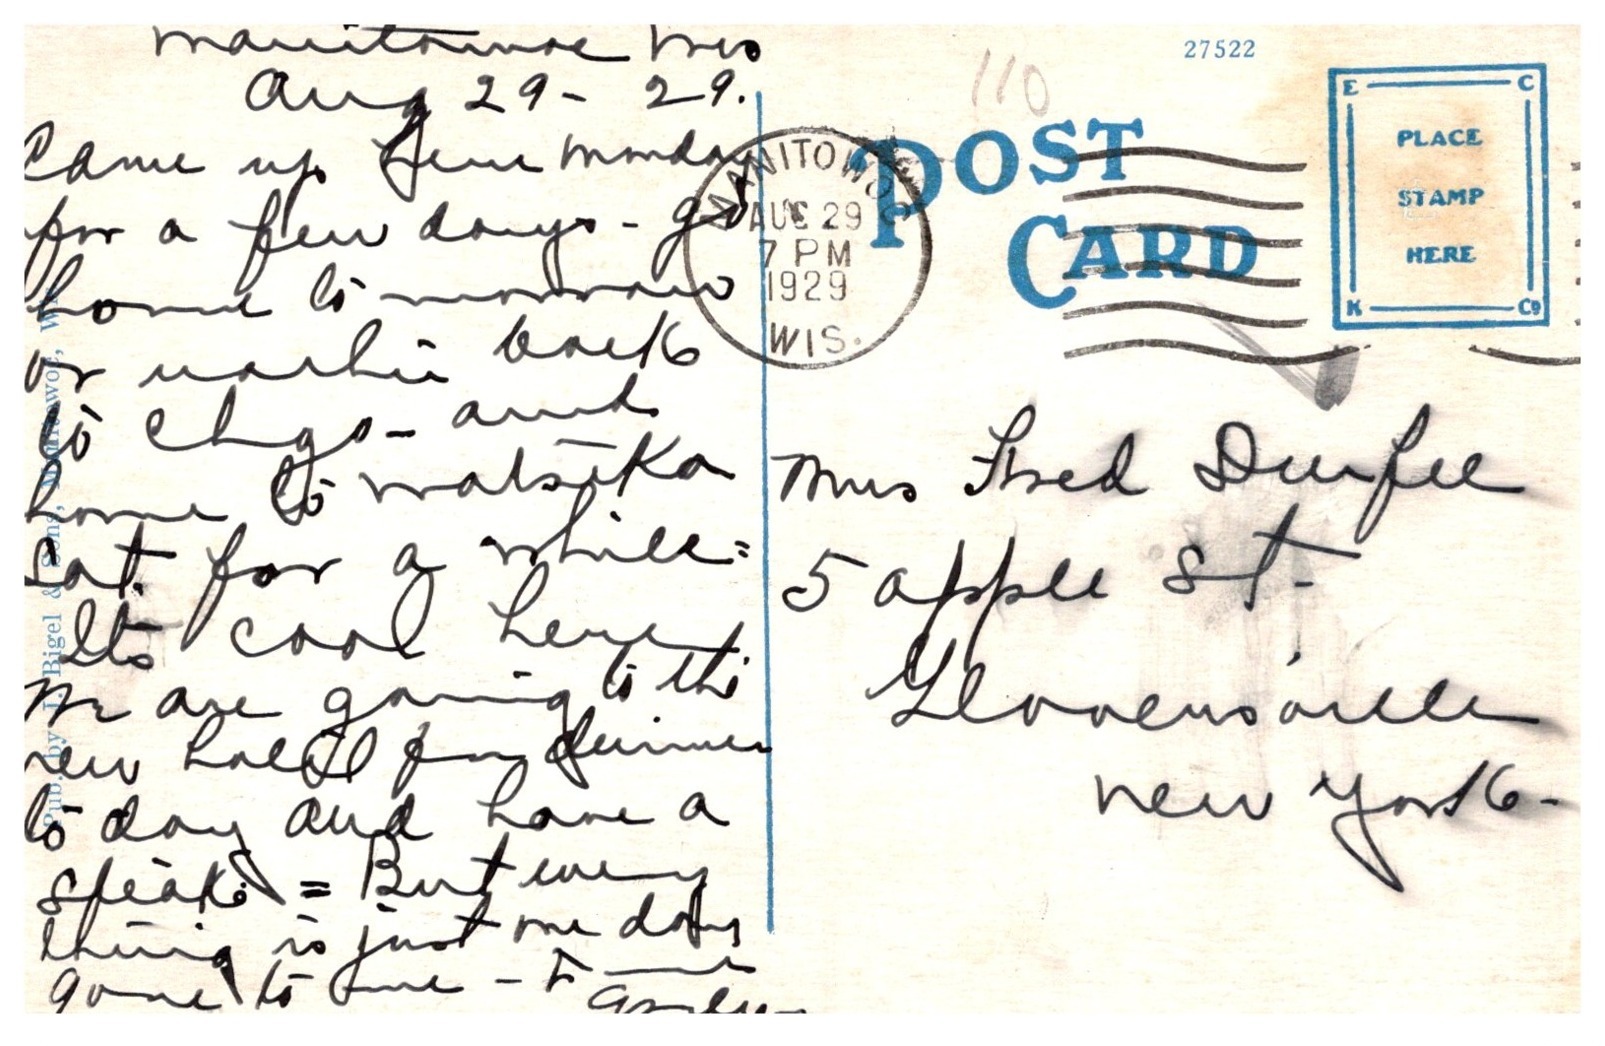 Manitowoc Wis
Aug 29 - 29.
Came up here Monday
for a few days - go
home to morrow
or rather back
to Chgo - and
home to Watseka
Sat. for a while =
Its cool here
We are going to the
new hotel for dinner
to day and have a
speak. = But every
thing is just one day
gone to me -
Pub. by J. Bigel & Sons, Manitowoc, Wis.
27522
110
POST
CARD
MANITOWOC
AUG 29
7 PM
1929
WIS.
E C
PLACE
STAMP
HERE
K Co
Mrs Fred Durfee
5 apple St.
Gloversville
New York -